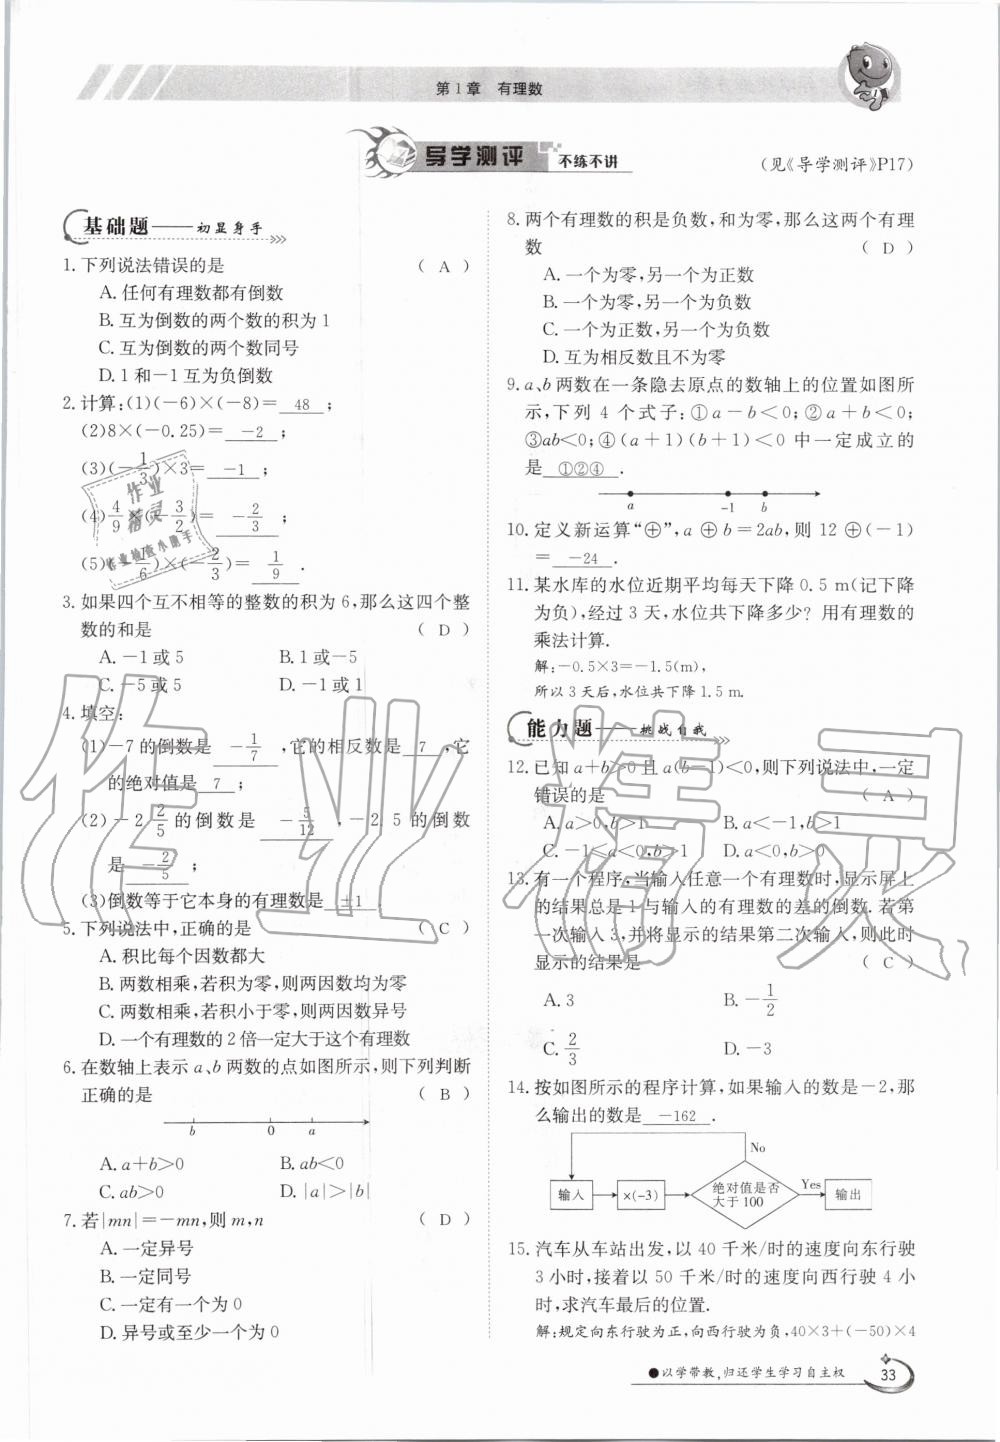 第1章 有理数
导学测评 不练不讲
(见《导学测评》P17)
基础题——初显身手
1.下列说法错误的是 ( A )
A.任何有理数都有倒数
B.互为倒数的两个数的积为1
C.互为倒数的两个数同号
D.1和-1互为负倒数
2.计算:(1)(-6)×(-8)= 48 ;
(2)8×(-0.25)= -2 ;
(3)(-1/3)×3= -1 ;
(4)4/9×(-3/2)= -2/3 ;
(5)(-1/6)×(-2/3)= 1/9 .
3.如果四个互不相等的整数的积为6,那么这四个整
数的和是 ( D )
A.-1或5 B.1或-5
C.-5或5 D.-1或1
4.填空:
(1)-7的倒数是 -1/7 ,它的相反数是 7 ,它
的绝对值是 7 ;
(2)-2 2/5 的倒数是 -5/12 ,-2.5的倒数
是 -2/5 ;
(3)倒数等于它本身的有理数是 ±1 .
5.下列说法中,正确的是 ( C )
A.积比每个因数都大
B.两数相乘,若积为零,则两因数均为零
C.两数相乘,若积小于零,则两因数异号
D.一个有理数的2倍一定大于这个有理数
6.在数轴上表示a、b两数的点如图所示,则下列判断
正确的是 ( B )
b 0 a
A.a+b>0 B.ab<0
C.ab>0 D.|a|>|b|
7.若|mn|=-mn,则m,n ( D )
A.一定异号
B.一定同号
C.一定有一个为0
D.异号或至少一个为0
8.两个有理数的积是负数,和为零,那么这两个有理
数 ( D )
A.一个为零,另一个为正数
B.一个为零,另一个为负数
C.一个为正数,另一个为负数
D.互为相反数且不为零
9.a、b两数在一条隐去原点的数轴上的位置如图所
示,下列4个式子:①a-b<0;②a+b<0;
③ab<0;④(a+1)(b+1)<0中一定成立的
是 ①②④ .
a -1 b
10.定义新运算“⊕”,a⊕b=2ab,则12⊕(-1)
= -24 .
11.某水库的水位近期平均每天下降0.5 m(记下降
为负),经过3天,水位共下降多少?用有理数的
乘法计算.
解:-0.5×3=-1.5(m),
所以3天后,水位共下降1.5 m.
能力题——挑战自我
12.已知a+b>0且a(b-1)<0,则下列说法中,一定
错误的是 ( A )
A.a>0,b>1 B.a<-1,b>1
C.-1≤a<0,b>1 D.a<0,b>0
13.有一个程序,当输入任意一个有理数时,显示屏上
的结果总是1与输入的有理数的差的倒数.若第
一次输入3,并将显示的结果第二次输入,则此时
显示的结果是 ( C )
A.3 B.-1/2
C.2/3 D.-3
14.按如图所示的程序计算,如果输入的数是-2,那
么输出的数是 -162 .
No
输入 ×(-3) 绝对值是否 Yes 输出
大于100
15.汽车从车站出发,以40千米/时的速度向东行驶
3小时,接着以50千米/时的速度向西行驶4小
时,求汽车最后的位置.
解:规定向东行驶为正,向西行驶为负,40×3+(-50)×4
●以学带教,归还学生学习自主权 33
作业精灵
作业
精灵
作业检查小助手